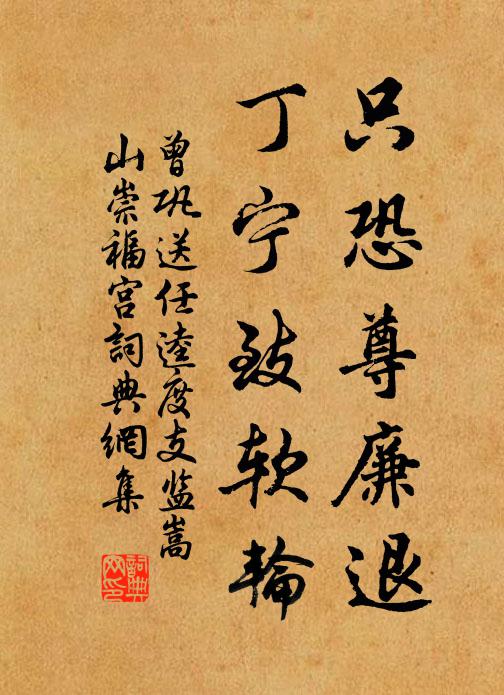 只恐尊廉退
丁宁致软轮
曾巩送任逵度支监嵩
山崇福宫詞典網集
詞典网印